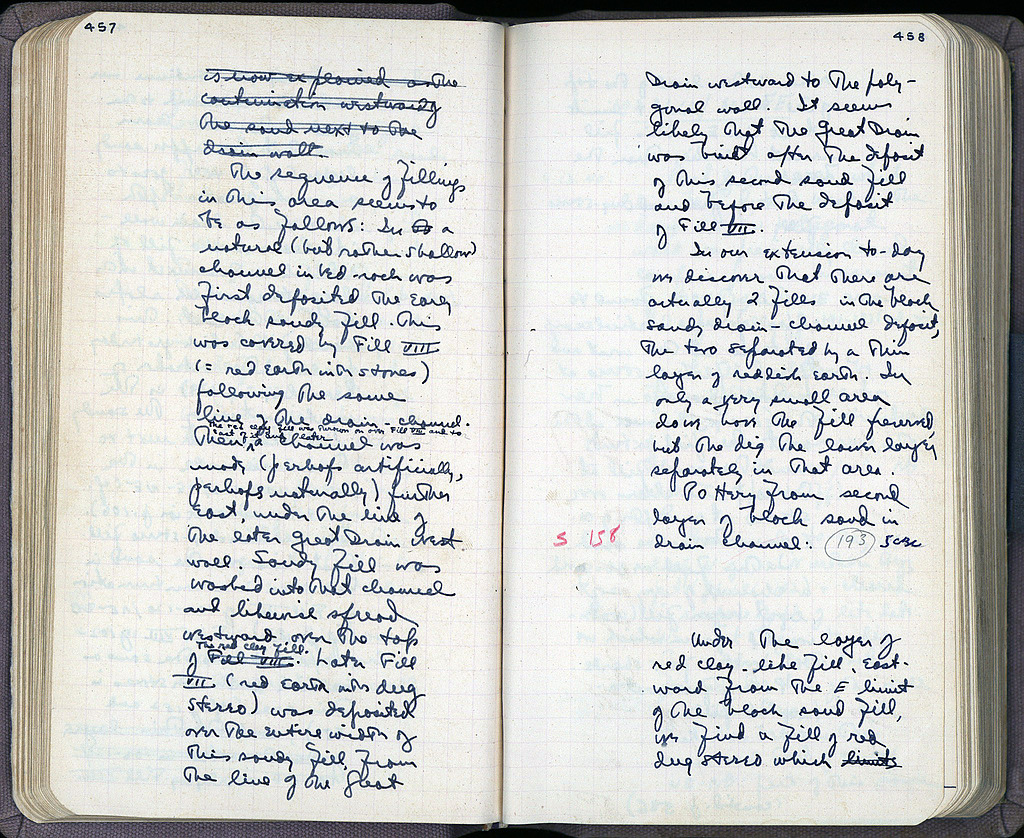 457
is now explained as the
continuation westwardly
the sand next to the
drain wall.
The sequence of fillings
in this area seems to
be as follows: In a
natural (but rather shallow)
channel in bed-rock was
first deposited the early
black sandy fill. This
was covered by Fill VIII
(= red earth with stones)
following the same
line of the drain channel.
The red clay fill was thrown in over Fill VIII and to
east of it and later
Then a channel was
made (perhaps artificially,
perhaps naturally) further
east, under the line of
the later great Drain west
wall. Sandy fill was
washed into that channel
and likewise spread
westward over the top
The red clay fill.
of Fill VIII. Later Fill
VII (red earth with dug
stereo) was deposited
over the entire width of
this sandy fill, from
the line of the Great
458
Drain westward to the poly-
gonal wall. It seems
likely that the Great Drain
was built after the deposit
of this second sand fill
and before the deposit
of Fill VII.
In our extension to-day
we discover that there are
actually 2 fills in the black
sandy drain-channel deposit,
the two separated by a thin
layer of reddish earth. In
only a very small area
does the fill preserved,
but the dig the lower layer
separately in that area.
Pottery from second
layer of black sand in
S 158
drain channel: 193
Under the layer of
red clay-like fill, east-
ward from the E limit
of the black sand fill,
we find a fill of red
dug stereo which limits